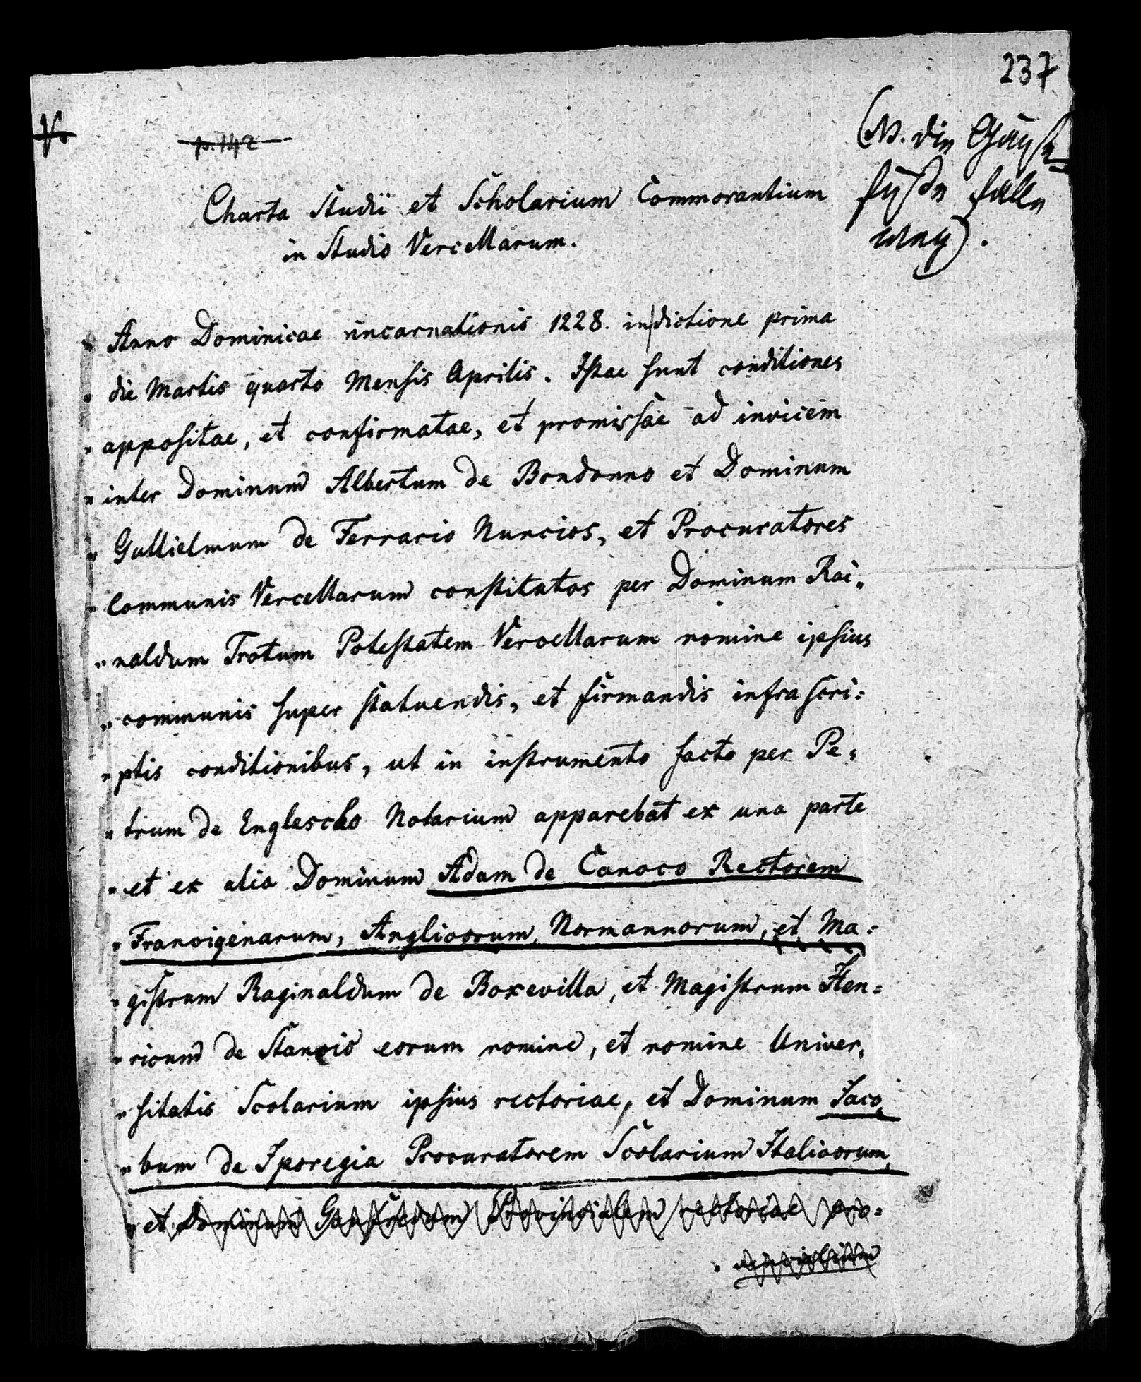 237
V.
p. 142
(NB. die Gänse-
füße fallen
weg).
Charta Studii et Scholarium Commorantium
in Studio Vercellarum.
„ Anno Dominicae incarnationis 1228. indictione prima
„ die Martis quarto Mensis Aprilis. Istae sunt conditiones
„ appositae, et confirmatae, et promissae ad invicem
„ inter Dominum Albertum de Bondonno et Dominum
„ Gullielmum de Ferrario Nuncios, et Procuratores
„ Communis Vercellarum constitutos per Dominum Rai„
„ naldum Trotum Potestatem Vercellarum nomine ipsius
„ communis super statuendis, et firmandis infra scri:
„ ptis conditionibus, ut in instrumento facto per Pe„
„ trum de Englescho Notarium apparebat ex una parte
„ et ex alia Dominum Adam de Canoco Rectorem
„ Francigenarum, Anglicorum, Normannorum, et Ma:
„ gistrum Raginaldum de Boxevilla, et Magistrum Hen:
„ ricum de Stancio eorum nomine, et nomine Univer„
„ sitatis Scolarium ipsius rectoriae, et Dominum Jaco„
„ bum de Iporegia Procuratorem Scolarium Italicorum,
„ et Dominum Provincialem rectoriae pro: